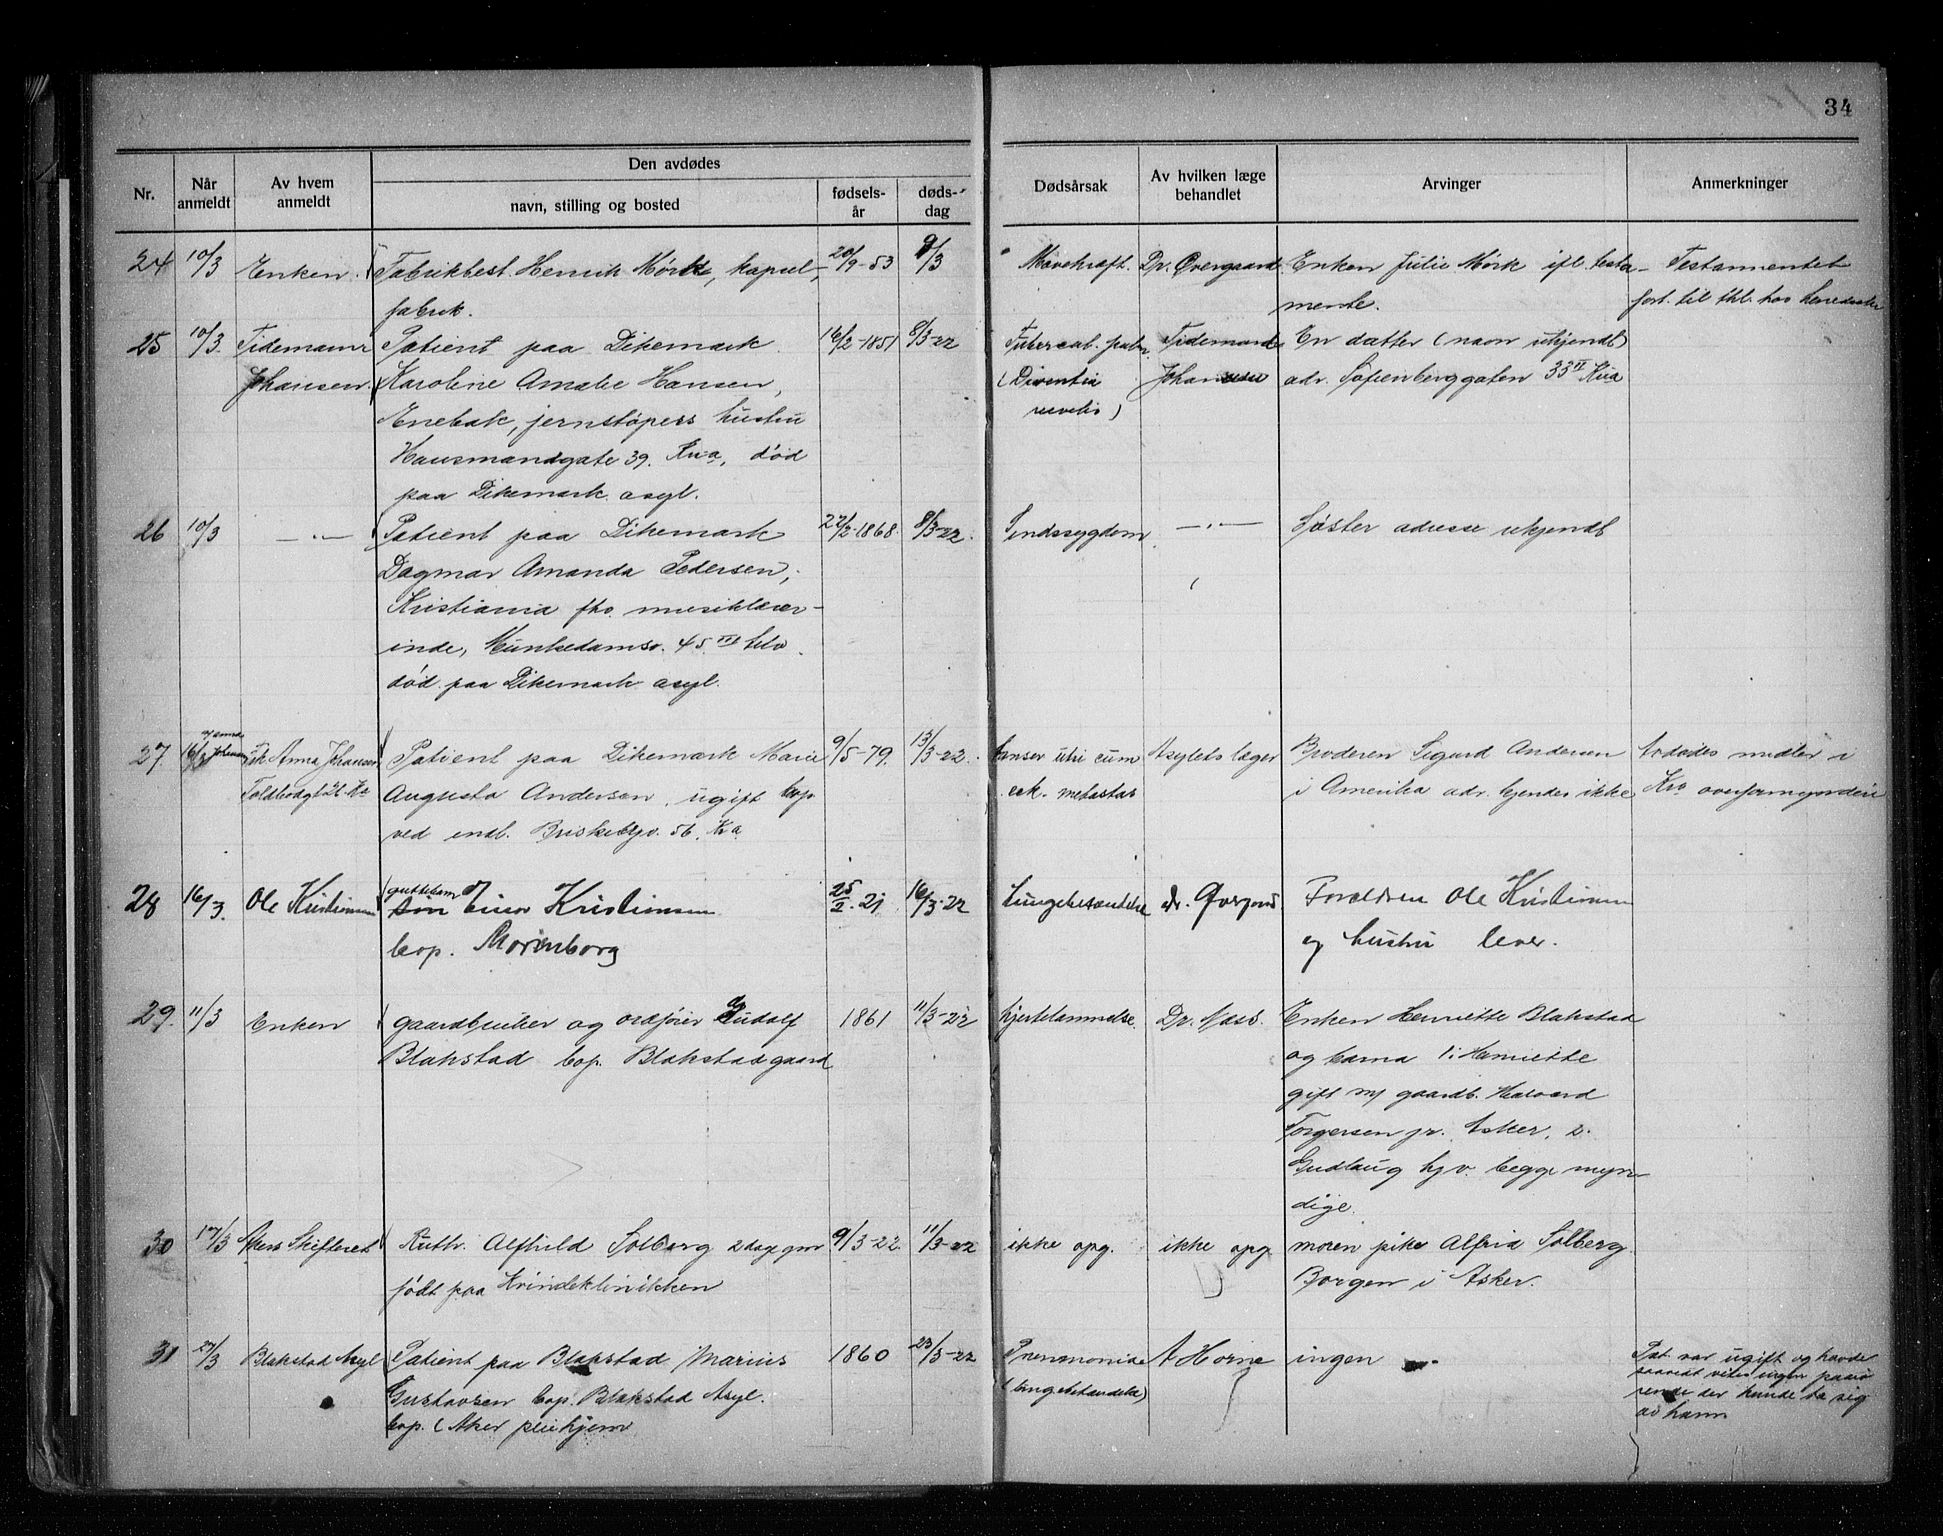 34
Nr.
Når anmeldt
Av hvem anmeldt
Den avdødes
navn, stilling og bosted
fødsels-år
døds-dag
Dødsårsak
Av hvilken læge behandlet
Arvinger
Anmerkninger
24 10/3 Enken. Fabrikbest. Henrik Mørk, kapsel- 20/9-53 9/3 Mavekræft. Dr. Øvergaard Enken Julie Mørk ifl. testa- Testamentet
fabrik. mente. fort. til thl. hos
25 10/3 Tidemann Patient paa Dikemark 16/2-1851 8/3-22 Tubercul. pulm. Tidemand En datter (navn ukjendt)
Johansen. Karoline Amalie Hansen, (Dementia Johansen adr. Sofienberggaten 33 II Kria
Enebak, jernstøpers hustru
Hausmandsgate 39. Kria, død
paa Dikemark asyl.
26 10/3 —"— Patient paa Dikemark 22/2-1868. 8/3-22. Sindssygdom —"— Søster adresse ukjendt
Dagmar Amanda Pedersen,
Kristiania fhv. musiklærer-
inde, Munkedamsv. 45 III
død paa Dikemark asyl.
27 16/3 Frk. Anna Johansen Patient paa Dikemark Marie 9/5-79. 13/3-22. Canser utri cum Asylets læger Broderen Sigurd Andersen Avdødes midler i
Toldbodgt 26 Kra Augusta Andersen, ugift bop. metastas i Amerika adr. kjendes ikke Kra overformynderi
ved indl. Briskebyv. 56. Kra
28 16/3 Ole Kristiansen guttebarn Einar Kristiansen 25/2-21 16/3-22 Lungebetændelse dr. Øvergaard Forældren Ole Kristiansen
bop. Morenborg og hustru lever.
29. 11/3 Enken gaardbruker og ordfører Gudolf 1861 11/3-22 hjertelammelse. Dr. Næss. Enken Henriette Blakstad
Blakstad bop. Blakstad gaard og barna 1: Henriette
gift m/ gaardb. Halvard
Torgersen jr. Asker, 2.
Gudlaug hjv. begge myn-
dige.
30 17/3 Akers Skifteret Ruth Alfhild Solberg 2 dage gml 9/3-22 11/3-22 ikke opg. ikke opg. moren pike Alfrid Solberg
født paa Kvindeklinikken Borgen i Asker.
31 27/3 Blakstad Asyl Patient paa Blakstad Marius 1860 23/3-22 Pneumonie A Horne ingen Pat. var ugift og havde
Gustavsen bop. Blakstad Asyl. (lungebetændelse) saavidt vites ingen paarø
bop. (Aker pleiehjem rende der kunde ta sig
av ham